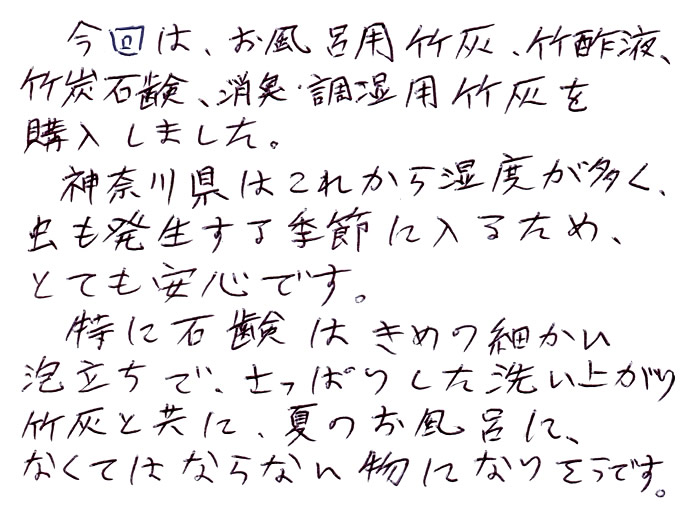 今回は、お風呂用竹灰、竹酢液、
竹炭石鹸、消臭・調湿用竹灰を
購入しました。
神奈川県はこれから湿度が多く、
虫も発生する季節に入るため、
とても安心です。
特に石鹸はきめの細かい
泡立ちで、さっぱりした洗い上がり
竹灰と共に、夏のお風呂に、
なくてはならない物になりそうです。